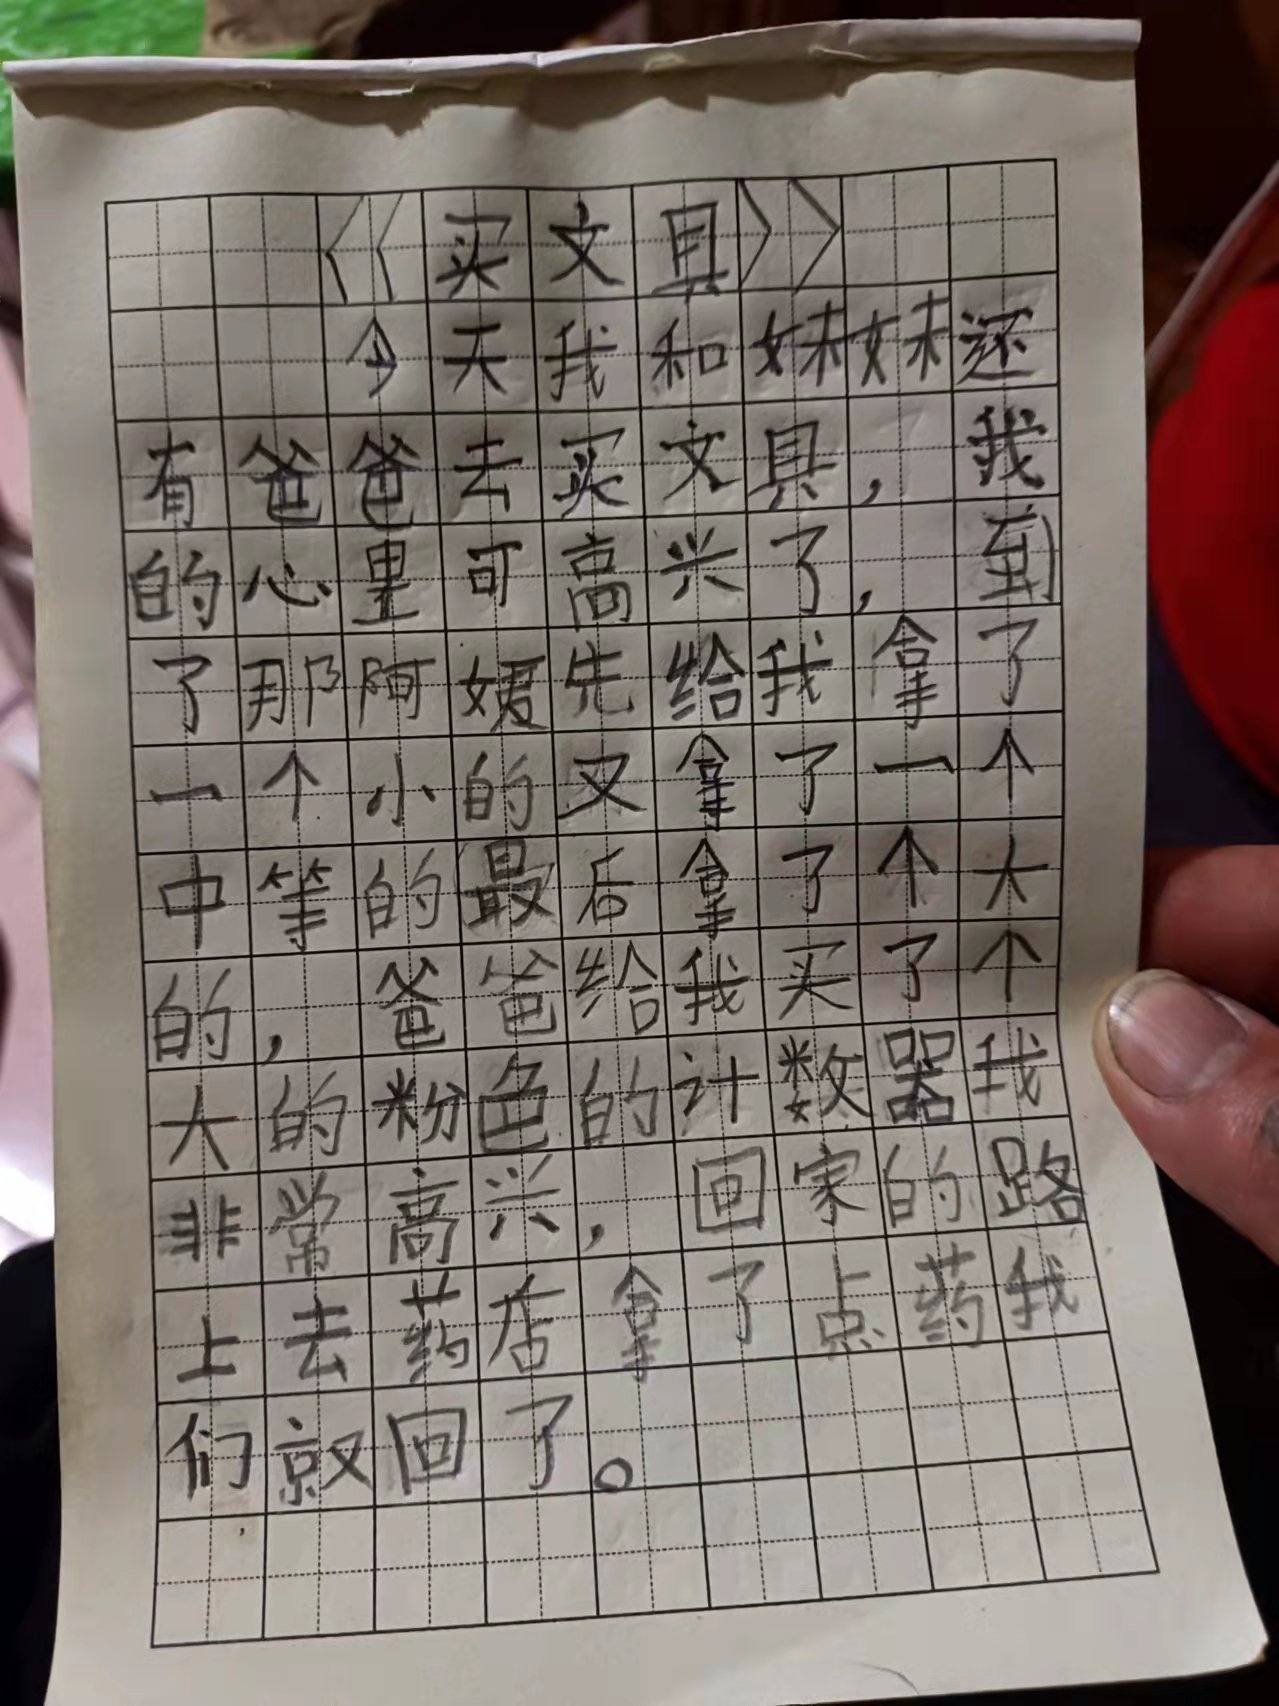 《买文具》
今天我和妹妹还
有爸爸去买文具，我
的心里可高兴了，到
了那阿姨先给我拿了
一个小的又拿了一个
中等的最后拿了个大
的，爸爸给我买了个
大的粉色的计数器我
非常高兴，回家的路
上去药店拿了点药我
们就回了。